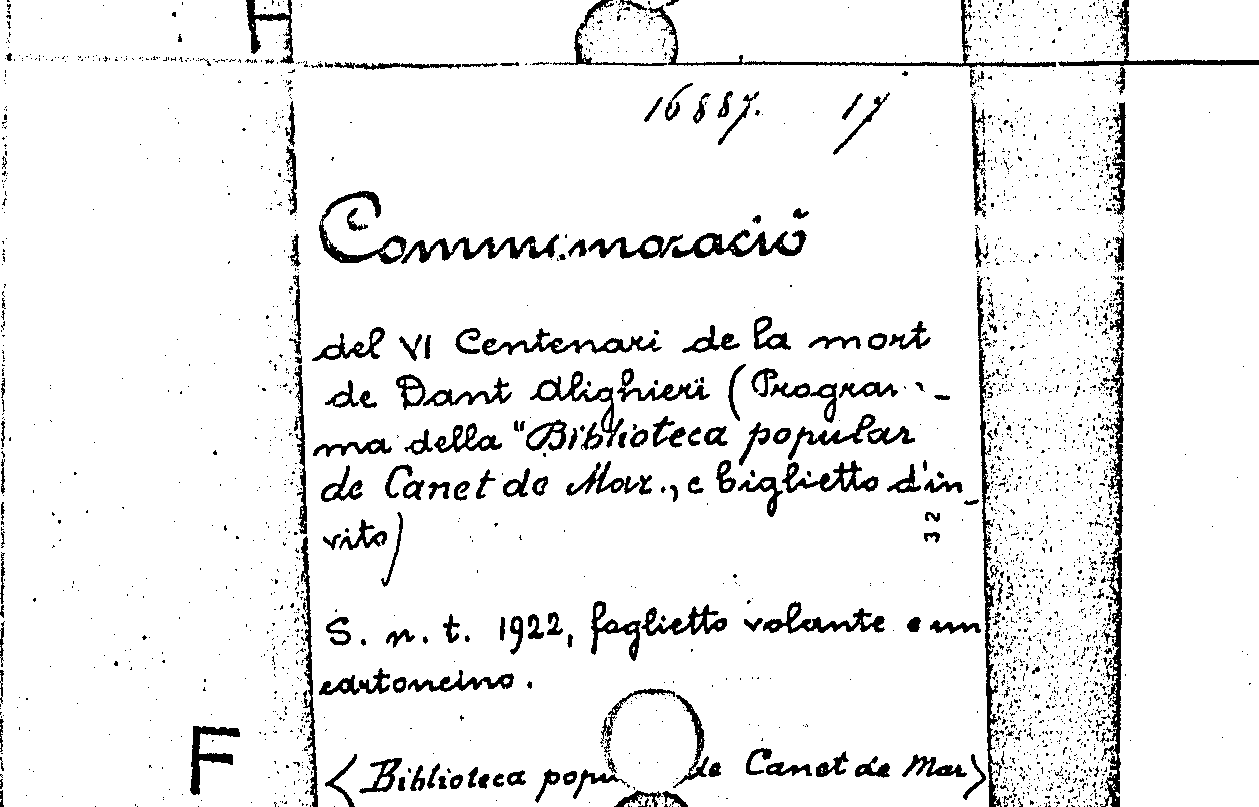 H
16887. 17
Commemoració
del VI Centenari de la mort
de Dant Alighieri (Program-
ma della "Biblioteca popular
de Canet de Mar., e biglietto d'in-
vito)
32
S. n. t. 1922, foglietto volante e un
cartoncino.
F
<Biblioteca popu de Canet de Mar>